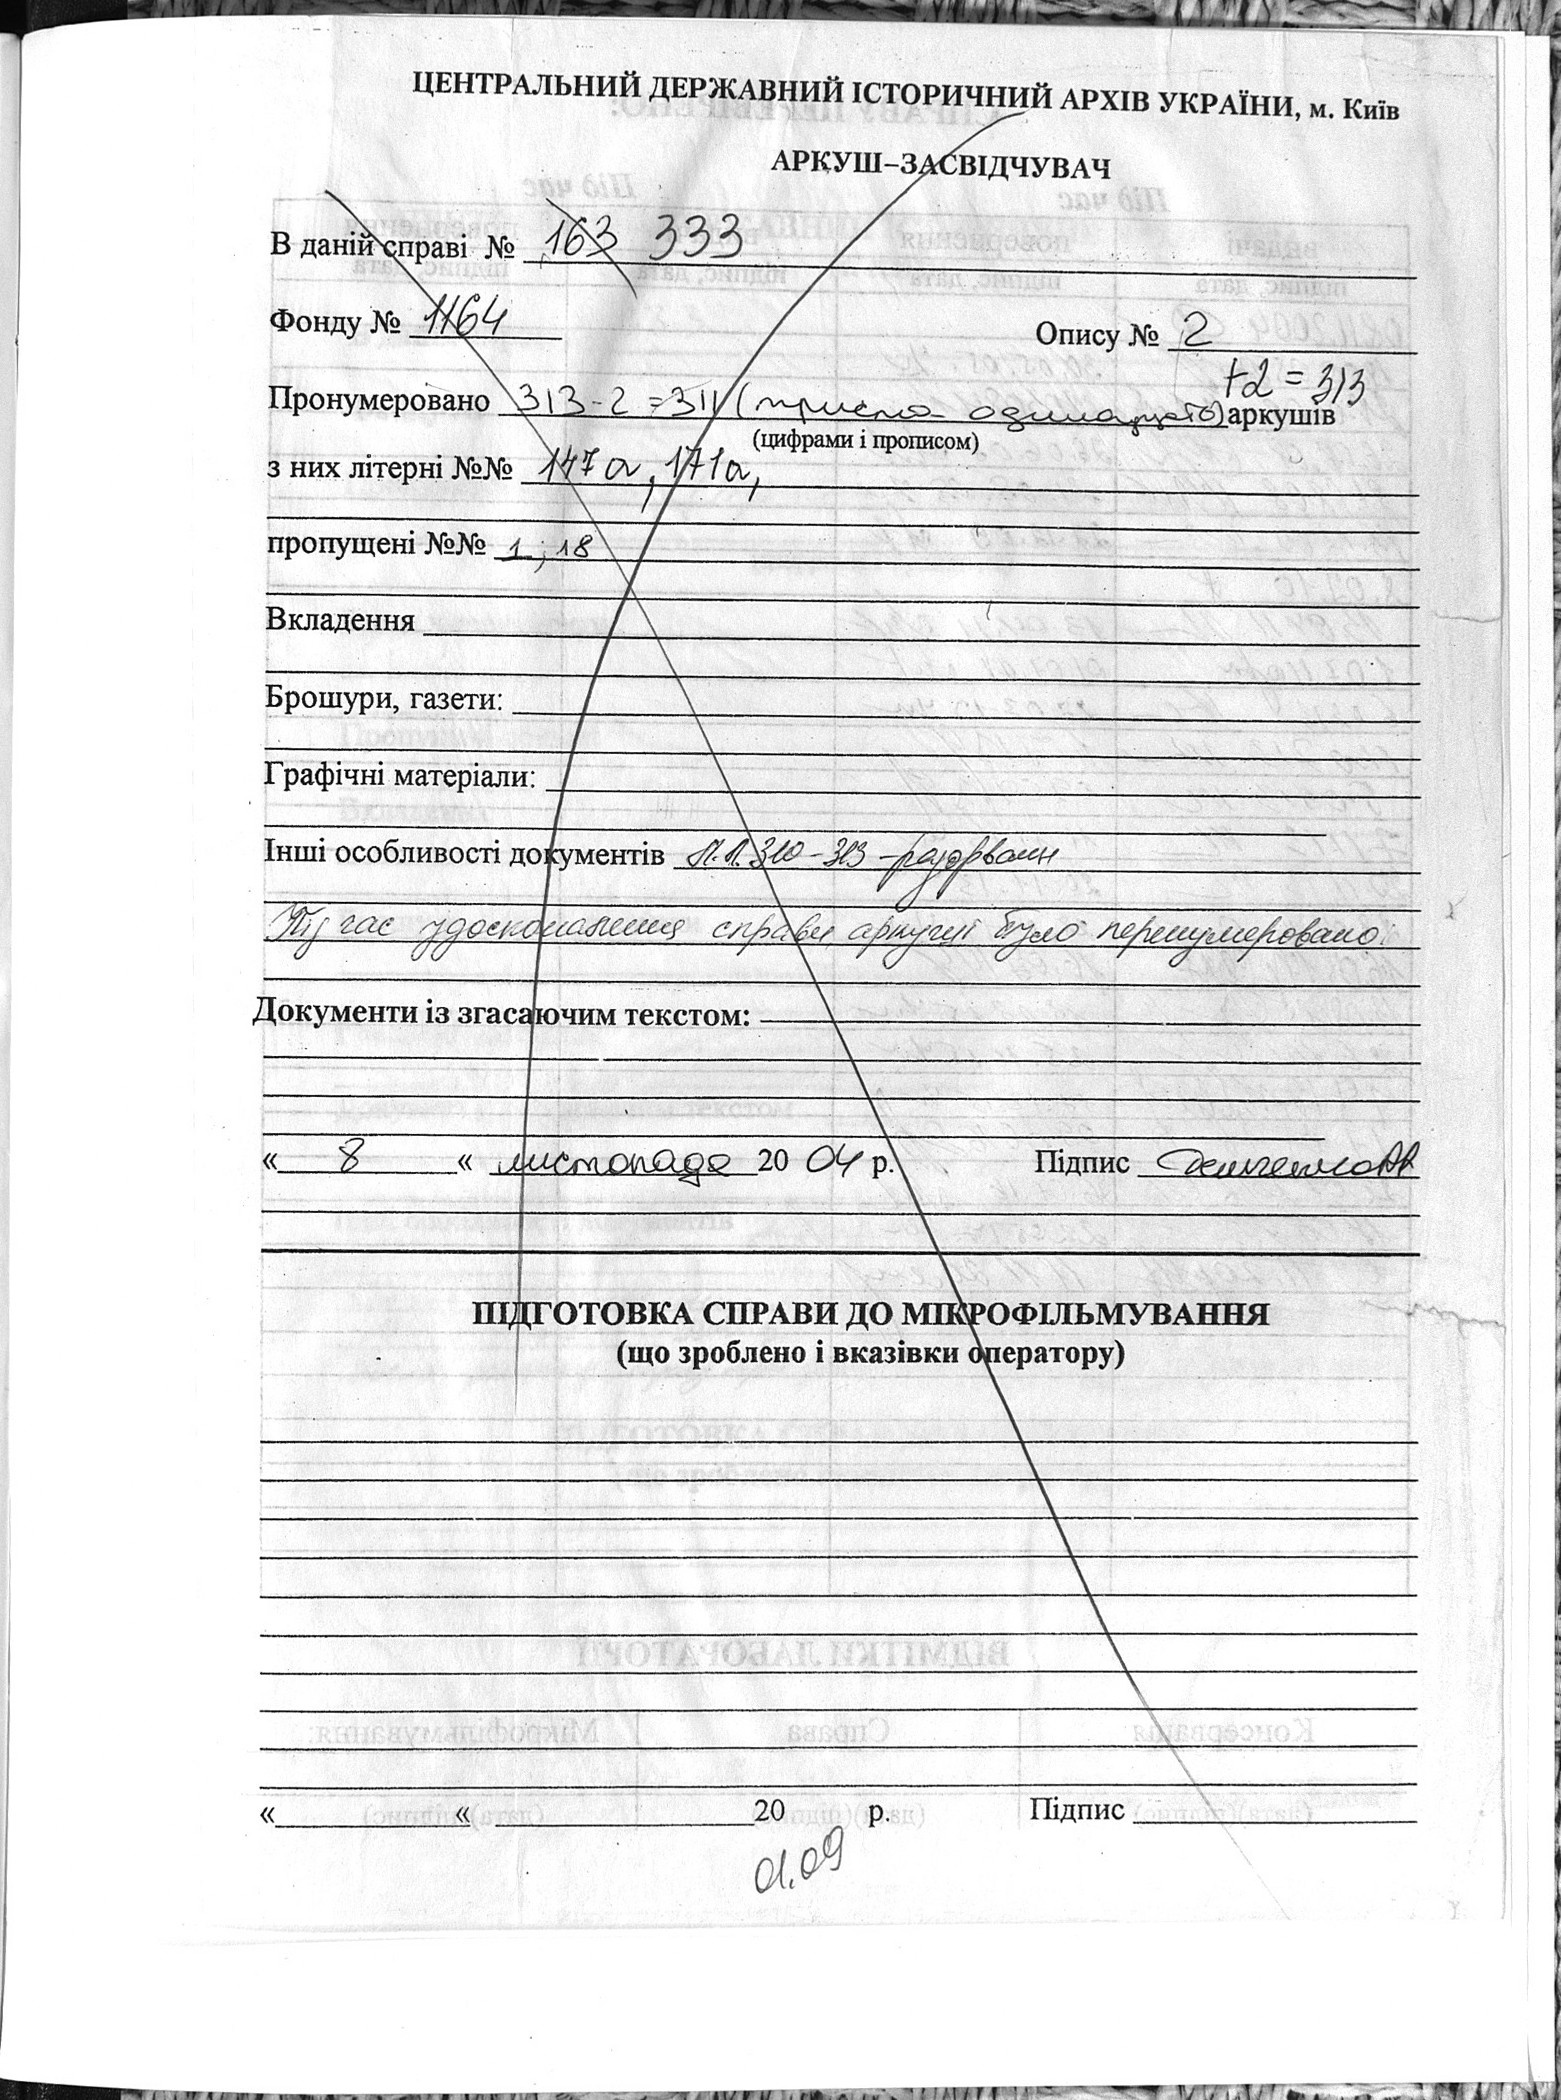 ЦЕНТРАЛЬНИЙ ДЕРЖАВНИЙ ІСТОРИЧНИЙ АРХІВ УКРАЇНИ, м. Київ
АРКУШ–ЗАСВІДЧУВАЧ
В даній справі № 163 333
Фонду № 1164 Опису № 2
+2 = 313
Пронумеровано 313-2=311 (триста одинадцять) аркушів
(цифрами і прописом)
з них літерні №№ 147а, 171а,
пропущені №№ 1; 18
Вкладення
Брошури, газети:
Графічні матеріали:
Інші особливості документів 310-313
Під час удосконалення справи аркуші було перенумеровано.
Документи із згасаючим текстом:
« 8 « листопада 20 04 р. Підпис
ПІДГОТОВКА СПРАВИ ДО МІКРОФІЛЬМУВАННЯ
(що зроблено і вказівки оператору)
« « 20 р. Підпис
01.09